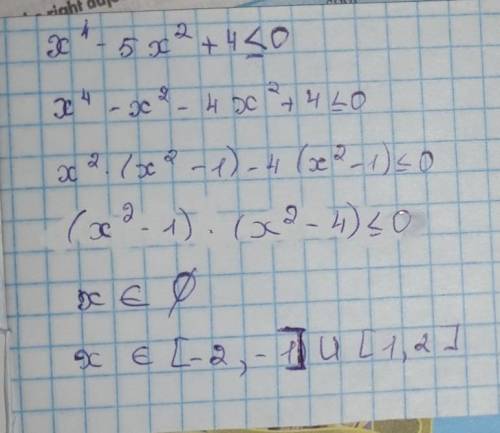 x⁴ - 5x² + 4 ≤ 0
x⁴ - x² - 4x² + 4 ≤ 0
x² · (x² - 1) - 4 (x² - 1) ≤ 0
(x² - 1) · (x² - 4) ≤ 0
x ∈ ∅
x ∈ [-2, -1] ∪ [1, 2]